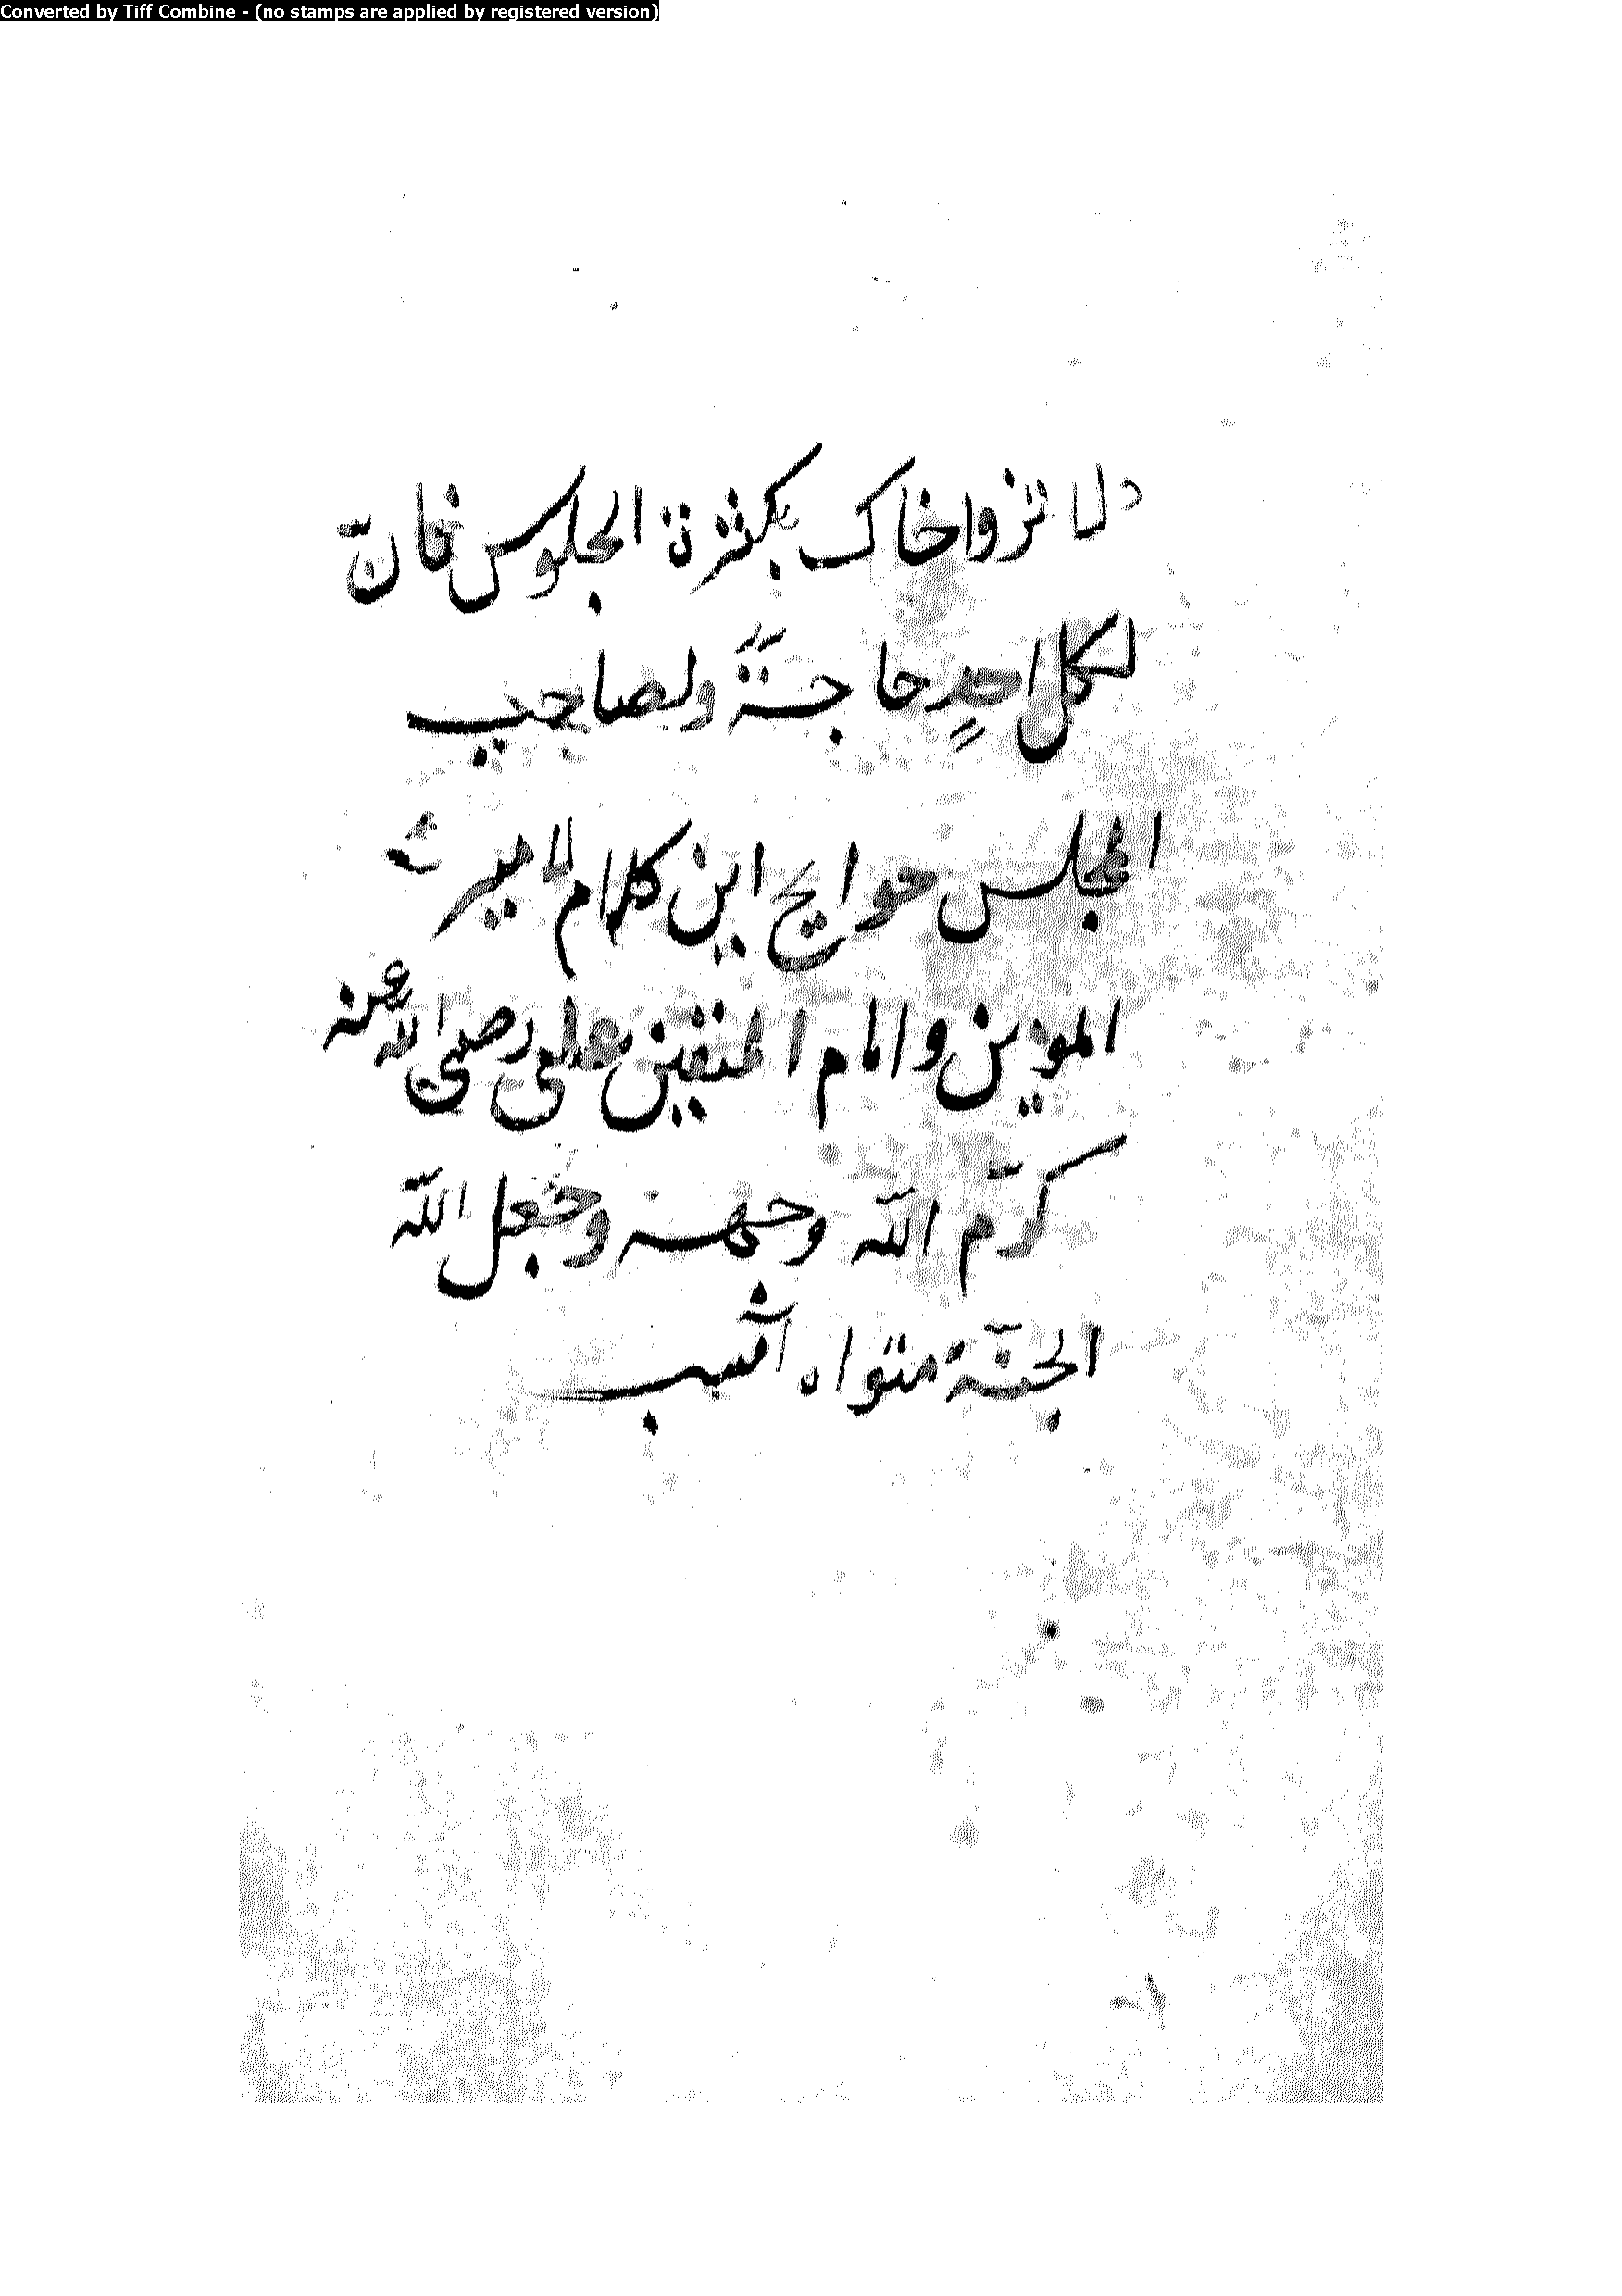 Converted by Tiff Combine - (no stamps are applied by registered version)
لا تزوا خاك بكثرة الجلوس فانّ
لكل احدٍ حاجةً ولصاحب
المجلس حوايج اين كلام لامير
المؤمنين وامام المتقين على رضى الله عنه
كرّم الله وجهه وجعل الله
الجنّة مثواه آمین